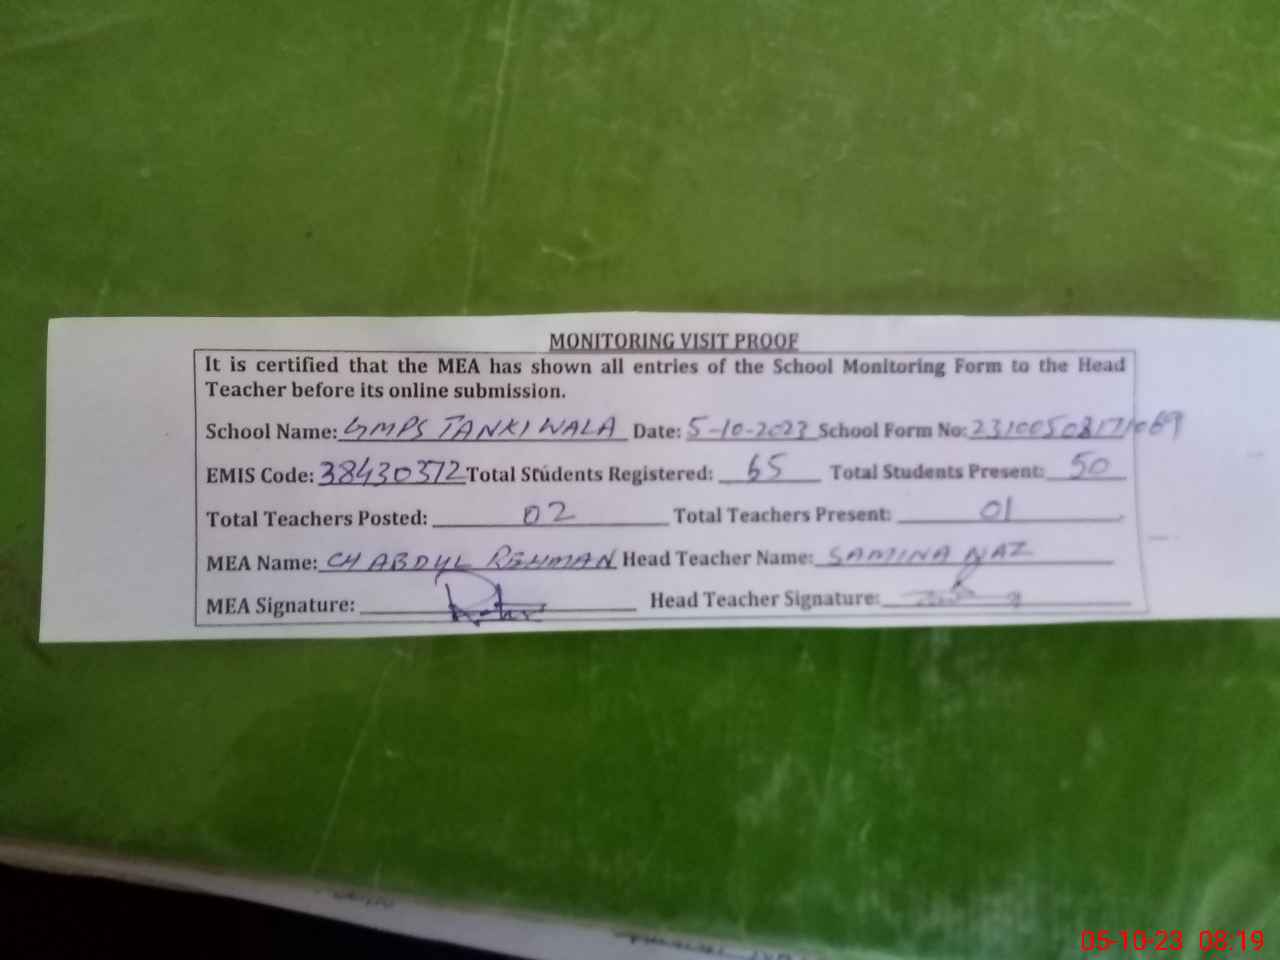 MONITORING VISIT PROOF
It is certified that the MEA has shown all entries of the School Monitoring Form to the Head
Teacher before its online submission.
School Name: GMPS TANKI WALA Date: 5-10-2023 School Form No: 23100508171069
EMIS Code: 38430372 Total Students Registered: 65 Total Students Present: 50
Total Teachers Posted: 02 Total Teachers Present: 01
MEA Name: CH ABDUL REHMAN Head Teacher Name: SAMINA NAZ
MEA Signature: Head Teacher Signature:
05-10-23 08:19